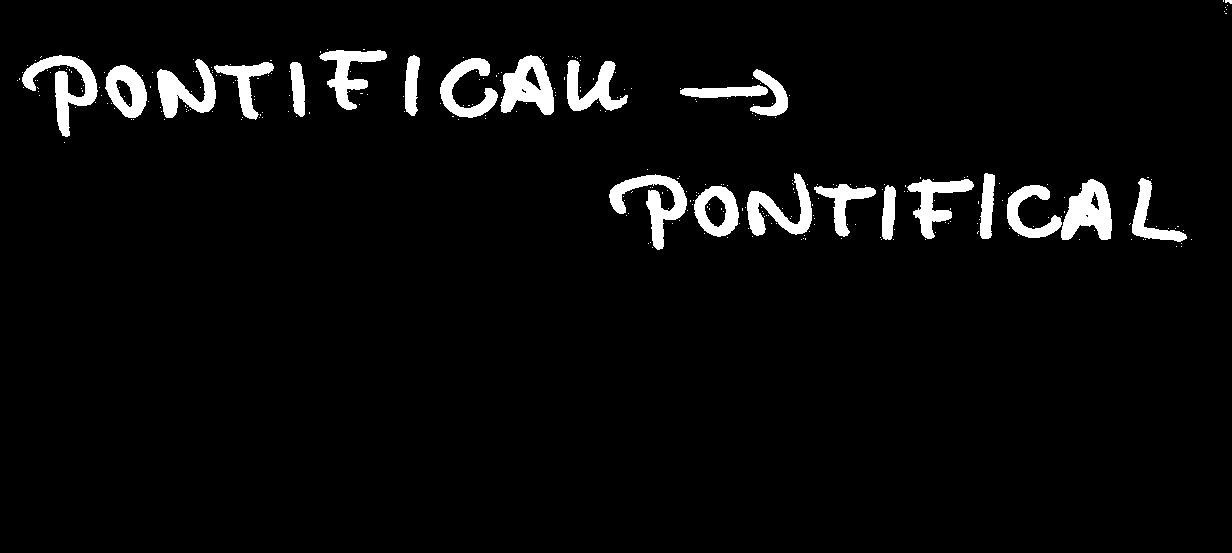 PONTIFICAU →
PONTIFICAL